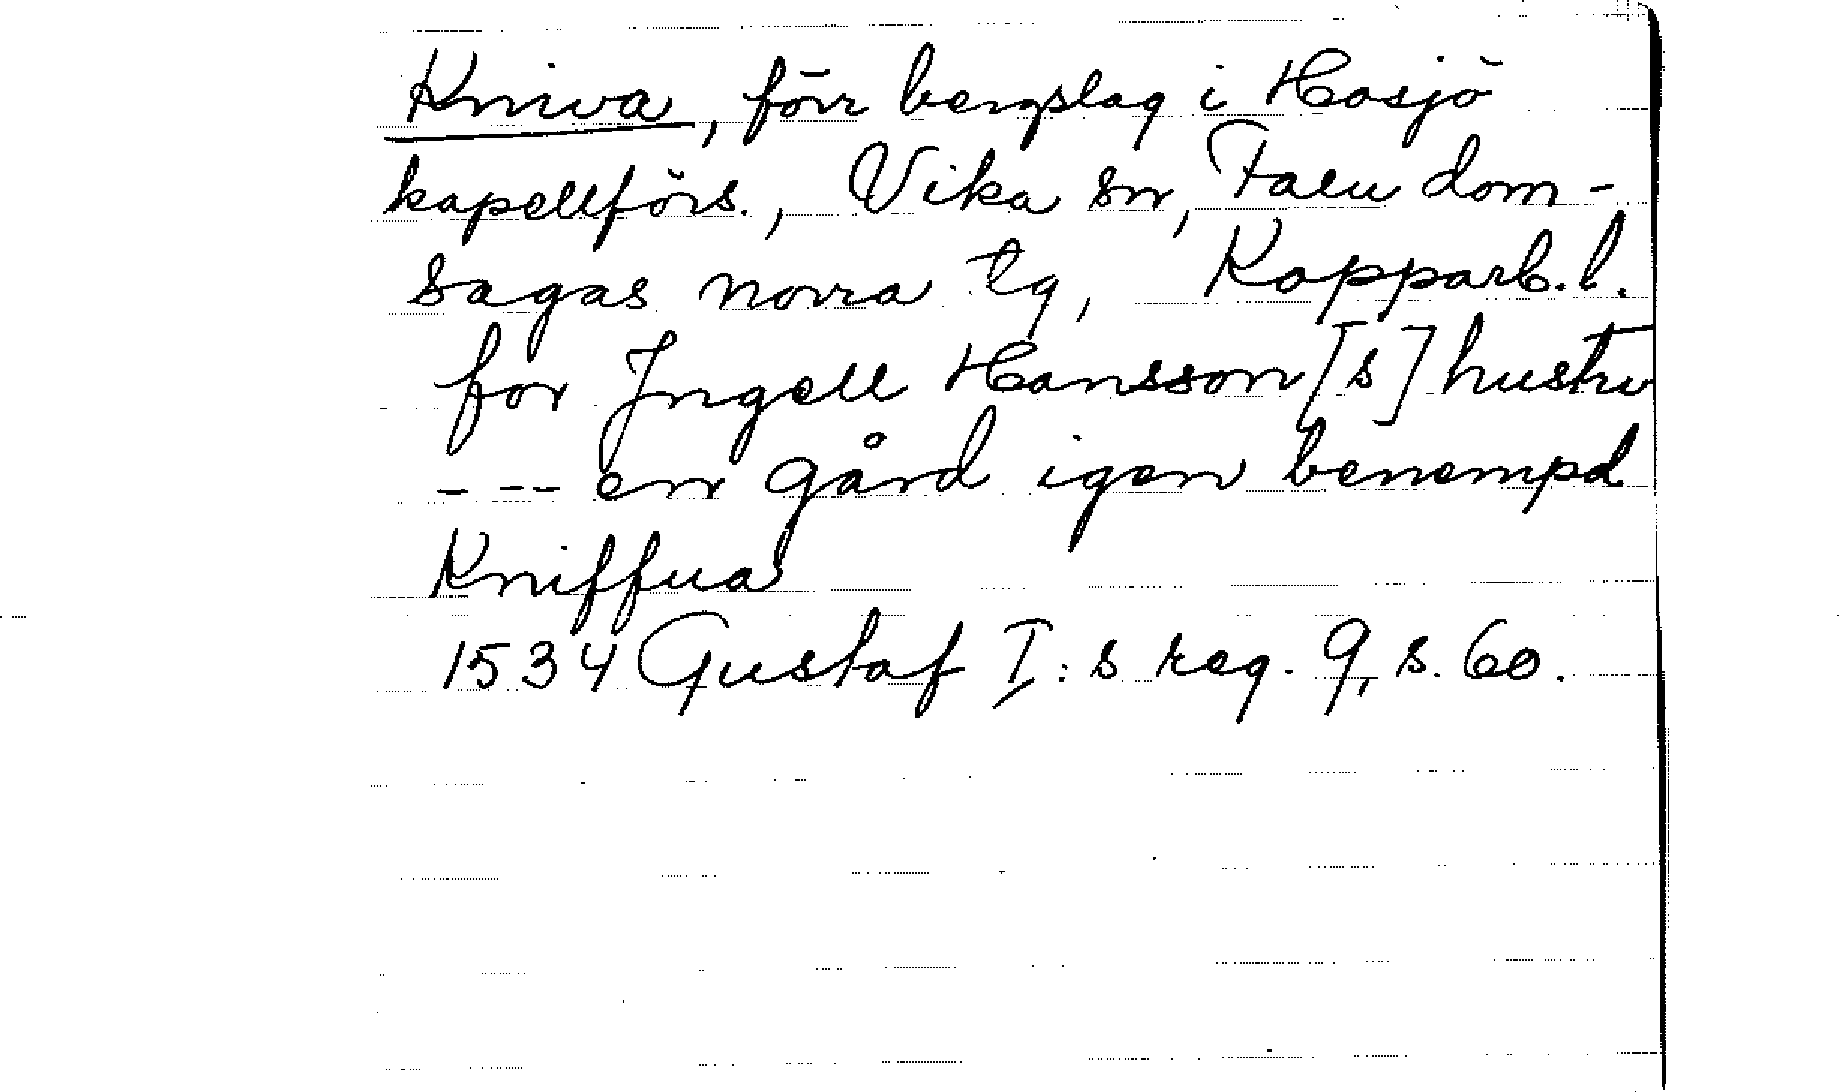 Kniva, förr bergslag i Hosjö
kapellförs., Vika sn, Falu dom-
sagas norra tg, Kopparb. l.
for Jngell Hansson[s] hustru
--- en gård igen benempd
Kniffua
1534 Gustaf I:s reg. 9, s. 60.